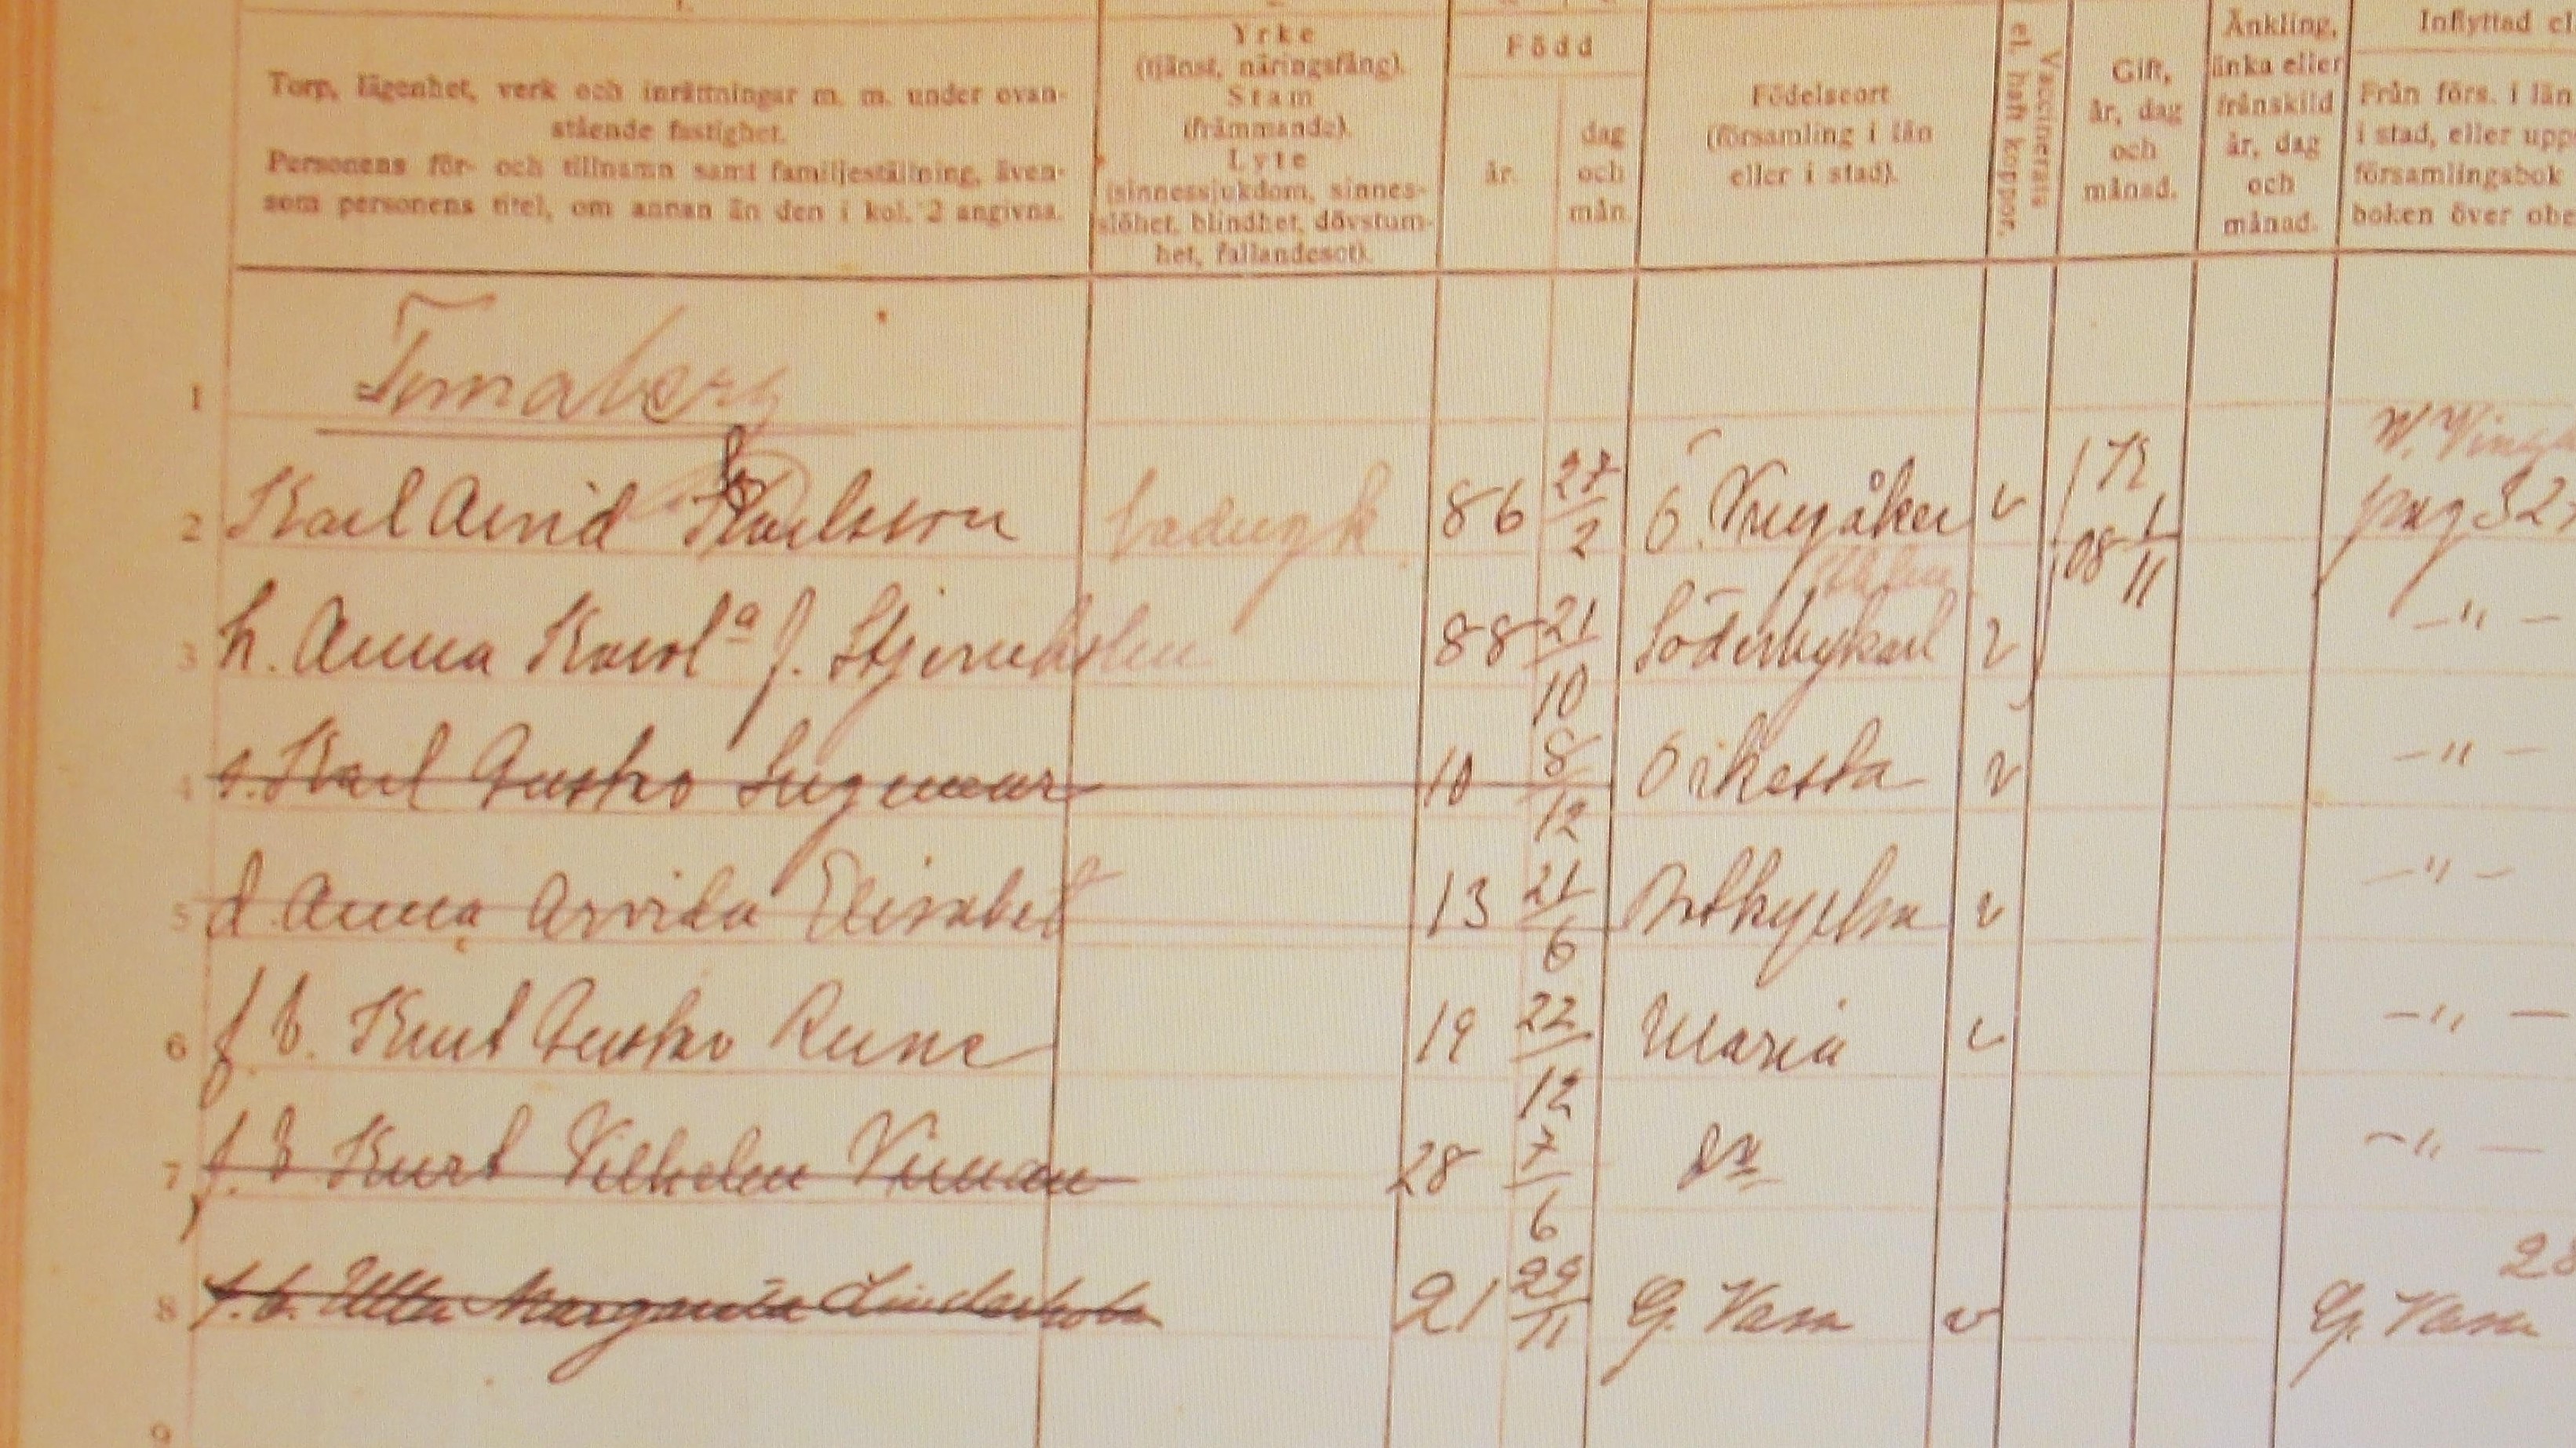 Torp, lägenhet, verk och inrättningar m. m. under ovan-
stående fastighet.
Personens för- och tillnamn samt familjeställning, även-
som personens titel, om annan än den i kol. 2 angivna.
Yrke
(tjänst, näringsfång).
Stam
(främmande).
Lyte
(sinnessjukdom, sinnes-
slöhet, blindhet, dövstum-
het, fallandesot).
Född
år.
dag
och
mån.
Födelseort
(församling i län
eller i stad).
Vaccinerats
el. haft koppor.
Gift,
år, dag
och
månad.
Änkling,
änka eller
frånskild
år, dag
och
månad.
Inflyttad el
Från förs. i län
i stad, eller upp
församlingsbok
boken över obe
1
2 Karl Arvid Karlsson 86 27/2 Ö. Vingåker v 08 1/11 pag 32
3 h. Anna Karola f. 88 21/10 v -"-
4 s. Karl Gustav Ingemar 10 8/12 Orkesta v -"-
5 d Anna Arvida Elisabet 13 21/6 v -"-
6 f. b. Knut Gustav Rune 19 22/12 Maria v -"-
7 f. b Kurt Vilhelm 28 7/6 do -"-
8 f. b. Ulla Margareta 21 /11 G. Vasa v G. Vasa
9